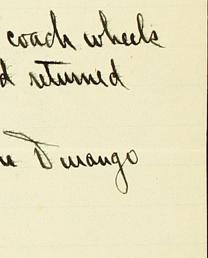 coach wheels
d returned
Durango